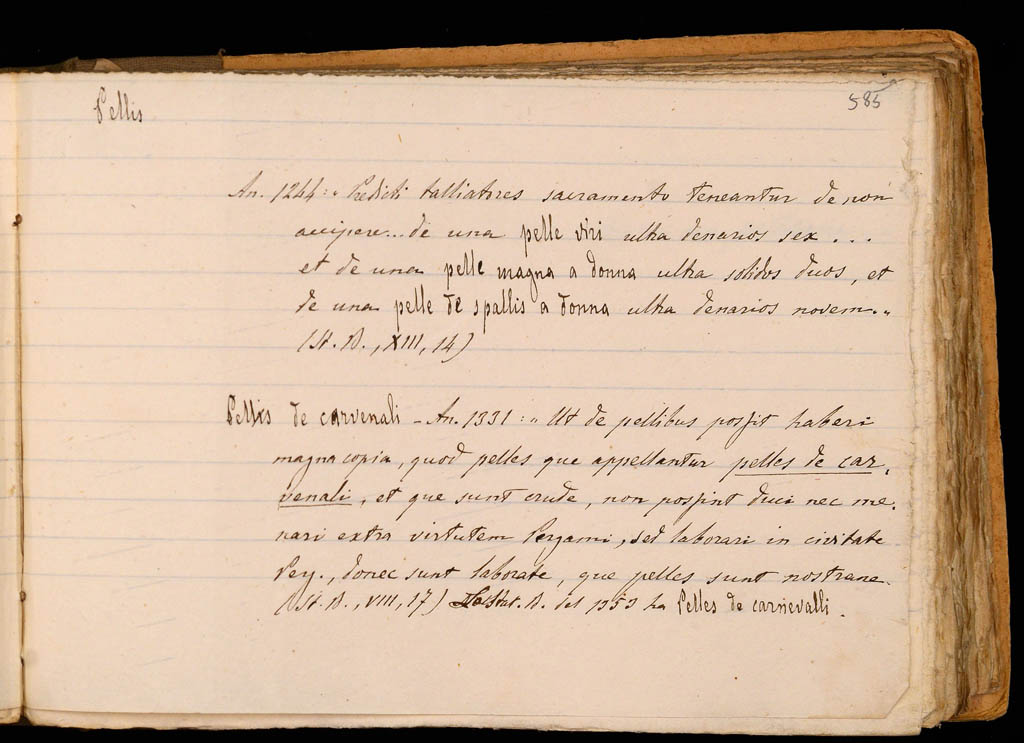 Pellis
585
An. 1244: „ Predicti talliatores sacramento teneantur de non
accipere... de una pelle viri ultra denarios sex . . .
et de una pelle magna a donna ultra solidos duos, et
de una pelle de spallis a donna ultra denarios novem. „
(St. B., XIII, 14)
Pellis de carvenali - An. 1331: „ Ut de pellibus possit haberi
magna copia, quod pelles que appellantur pelles de car,
venali, et que sunt crude, non possint duci nec me,
nari extra virtutem Pergami, sed laborari in civitate
Perg., donec sunt laborate, que pelles sunt nostrane.
(St. B., VIII, 17) Lo Stat. B. del 1353 ha Pelles de carnevalli.